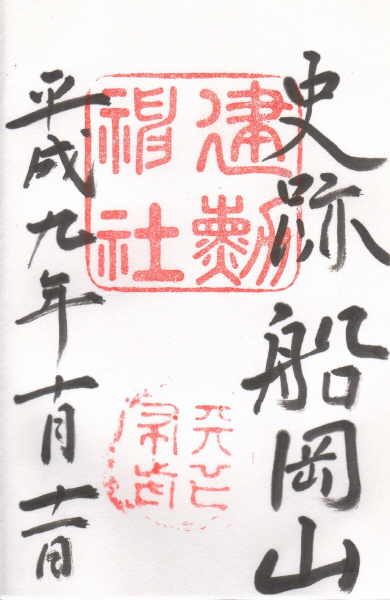 史跡 船岡山
建勲
神社
平成九年十月十一日